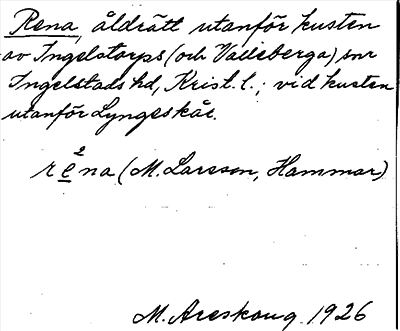 Rena, åldrätt utanför kusten
av Ingelstorps (och Valleberga) snr
Ingelstads hd, Krist. l.; vid kusten
utanför Lyngeskär.
2
rena (M. Larsson, Hammar)
M. Areskoug. 1926